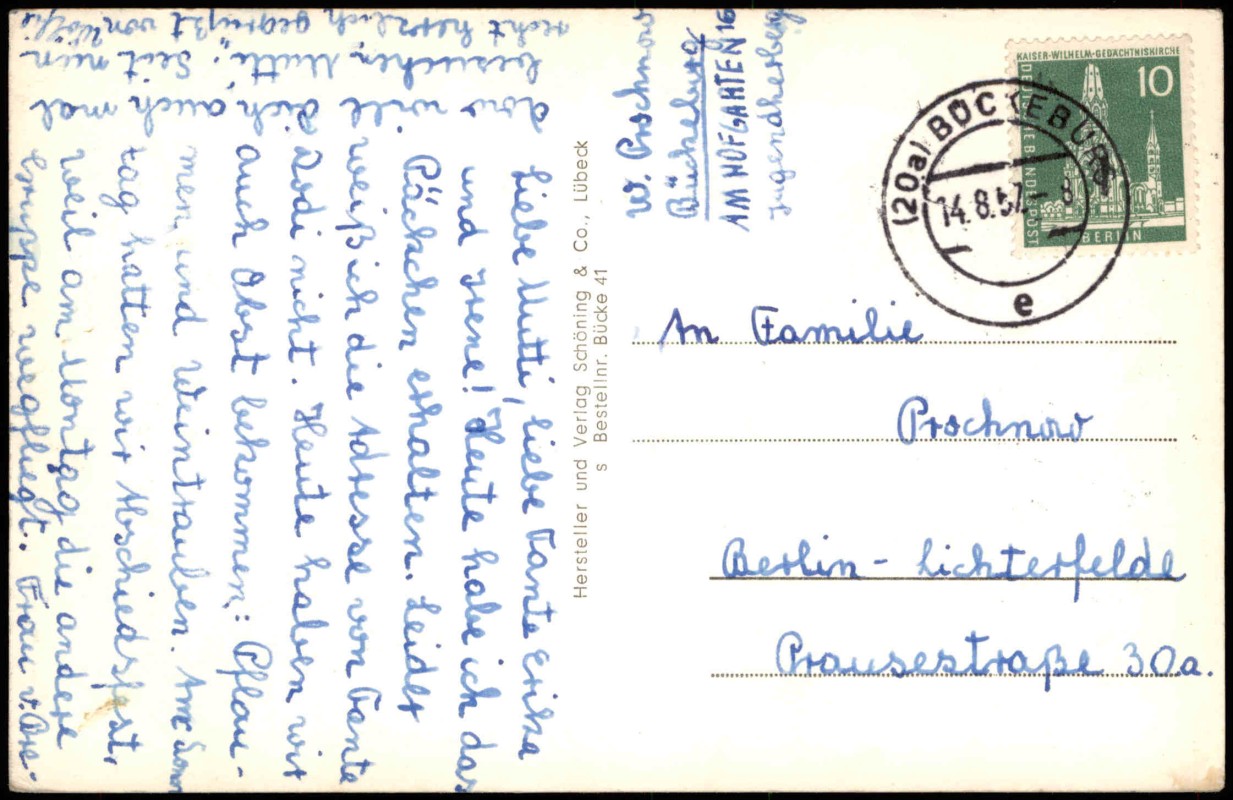 Liebe Mutti, liebe Tante Erika
und Irene! Heute habe ich das
Päckchen erhalten. Leider
weiß ich die Adresse von Tante
Dodi nicht. Heute haben wir
auch Obst bekommen: Pflau-
men und Weintrauben. Am Sonn
tag hatten wir Abschiedsfest,
weil am Montag die andere
Gruppe wegfliegt. Frau v. Bre-
dow will dich, auch mal
besuchen, Mutti. Seit nun
recht herzlich gegrüßt von
Hersteller und Verlag Schöning & Co., Lübeck
s Bestellnr. Bücke 41
W. Prochnow
Bückeburg
AM HOFGARTEN 16
Jugendherberg
KAISER-WILHELM-GEDÄCHTNISKIRCHE
10
DEUTSCHE BUNDESPOST
BERLIN
(20a) BÜCKEBURG
14.8.57-8
e
An Familie
Prochnow
Berlin-Lichterfelde
Prausestraße 30a.